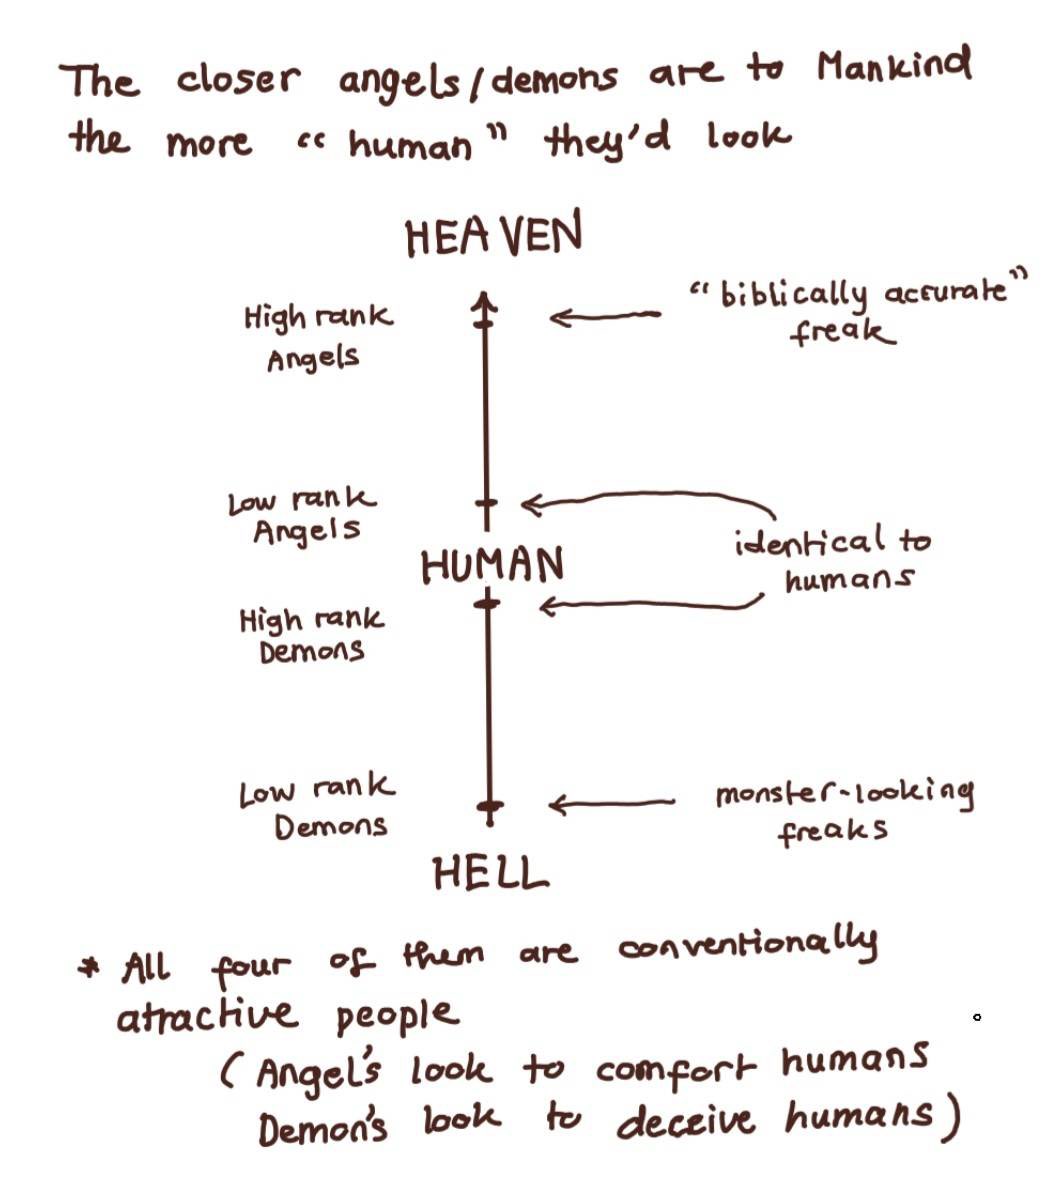 The closer angels/demons are to Mankind
the more "human" they'd look
HEAVEN
High rank
Angels
"biblically accurate"
freak
Low rank
Angels
identical to
humans
HUMAN
High rank
Demons
Low rank
Demons
monster-looking
freaks
HELL
* All four of them are conventionally
atractive people
(Angel's look to comfort humans
Demon's look to deceive humans)